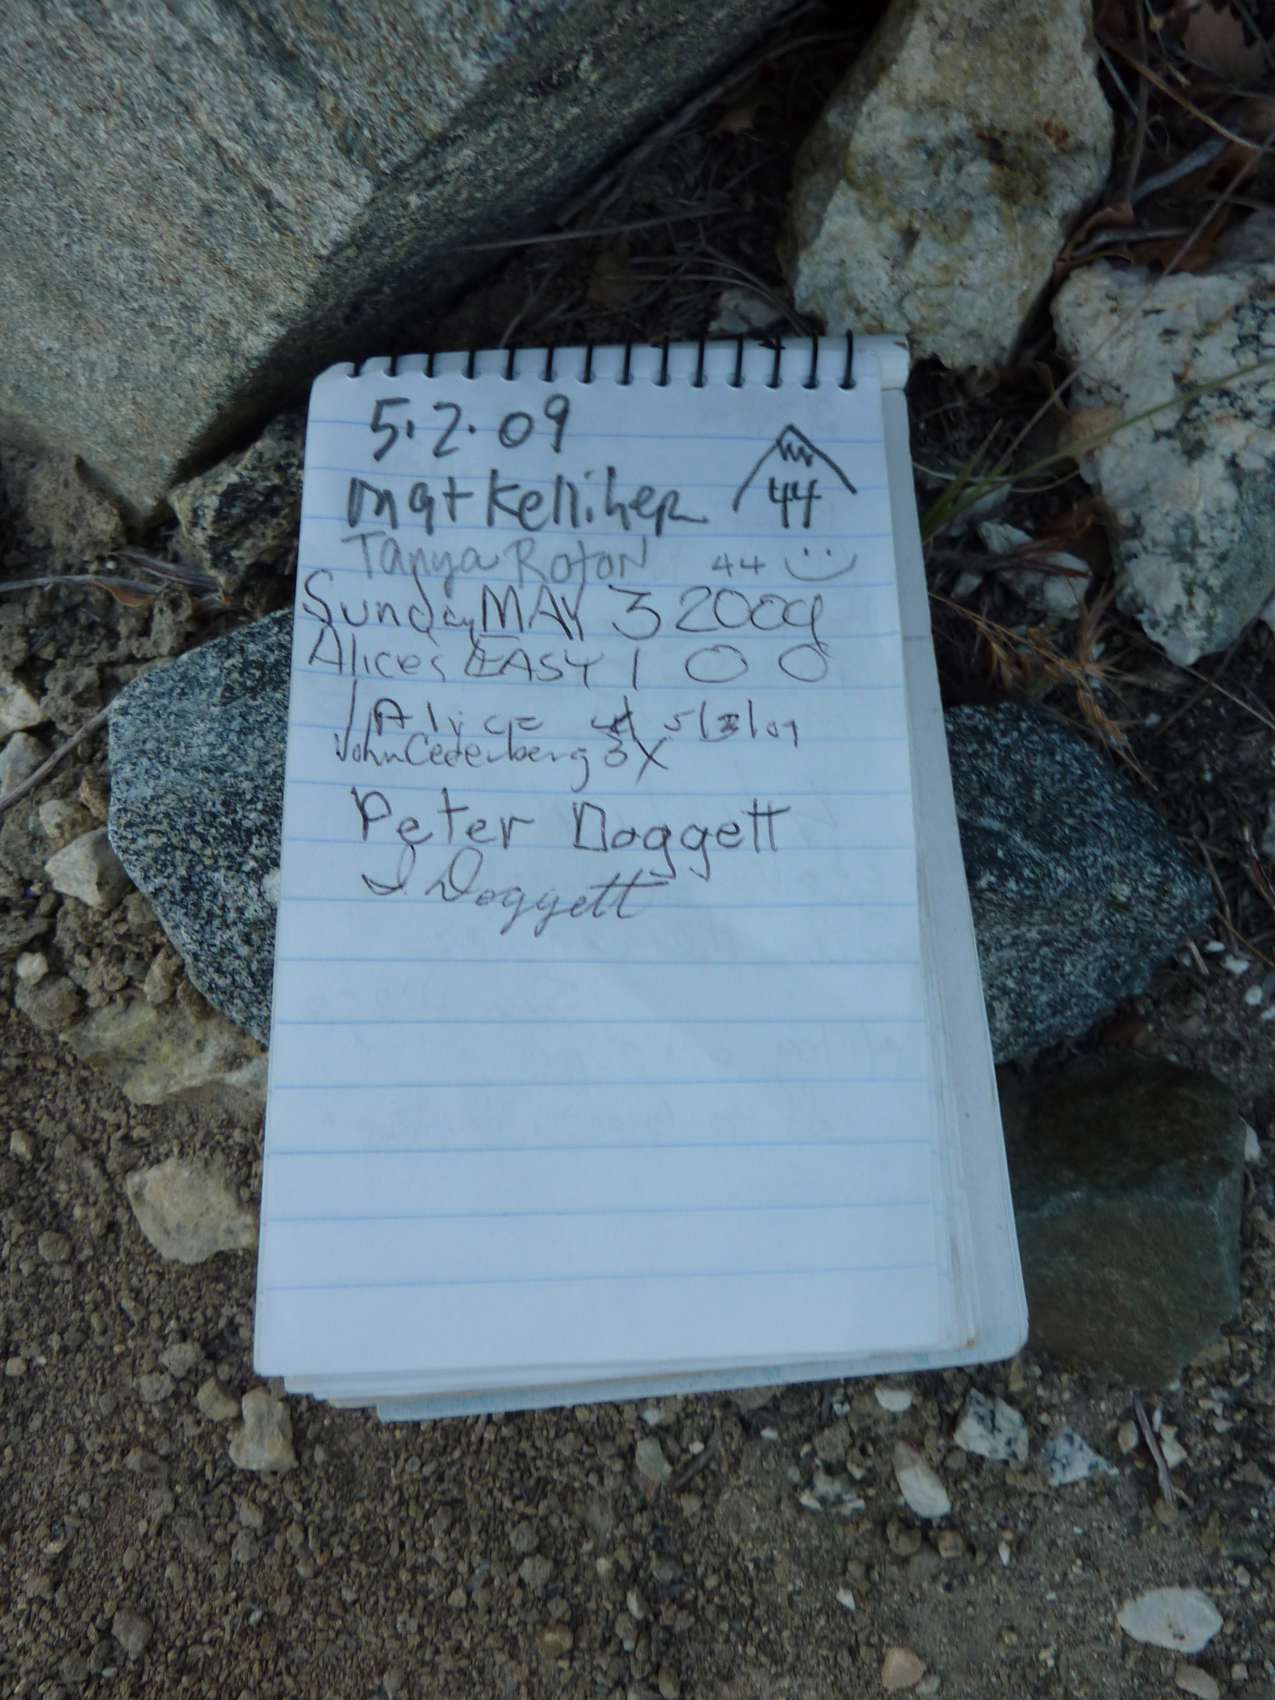 5.2.09
mat Kelliher 44
Tanya Roton 44
Sunday MAY 3 2009
Alices EASY 100
Alyce 5/3/09
John Cederberg 3X
Peter Doggett
I Doggett